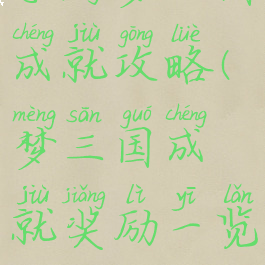 chéng jiù gōng lüè
成就攻略(
mèng sān guó chéng
梦三国成
jiù jiǎng lì yī lǎn
就奖励一览